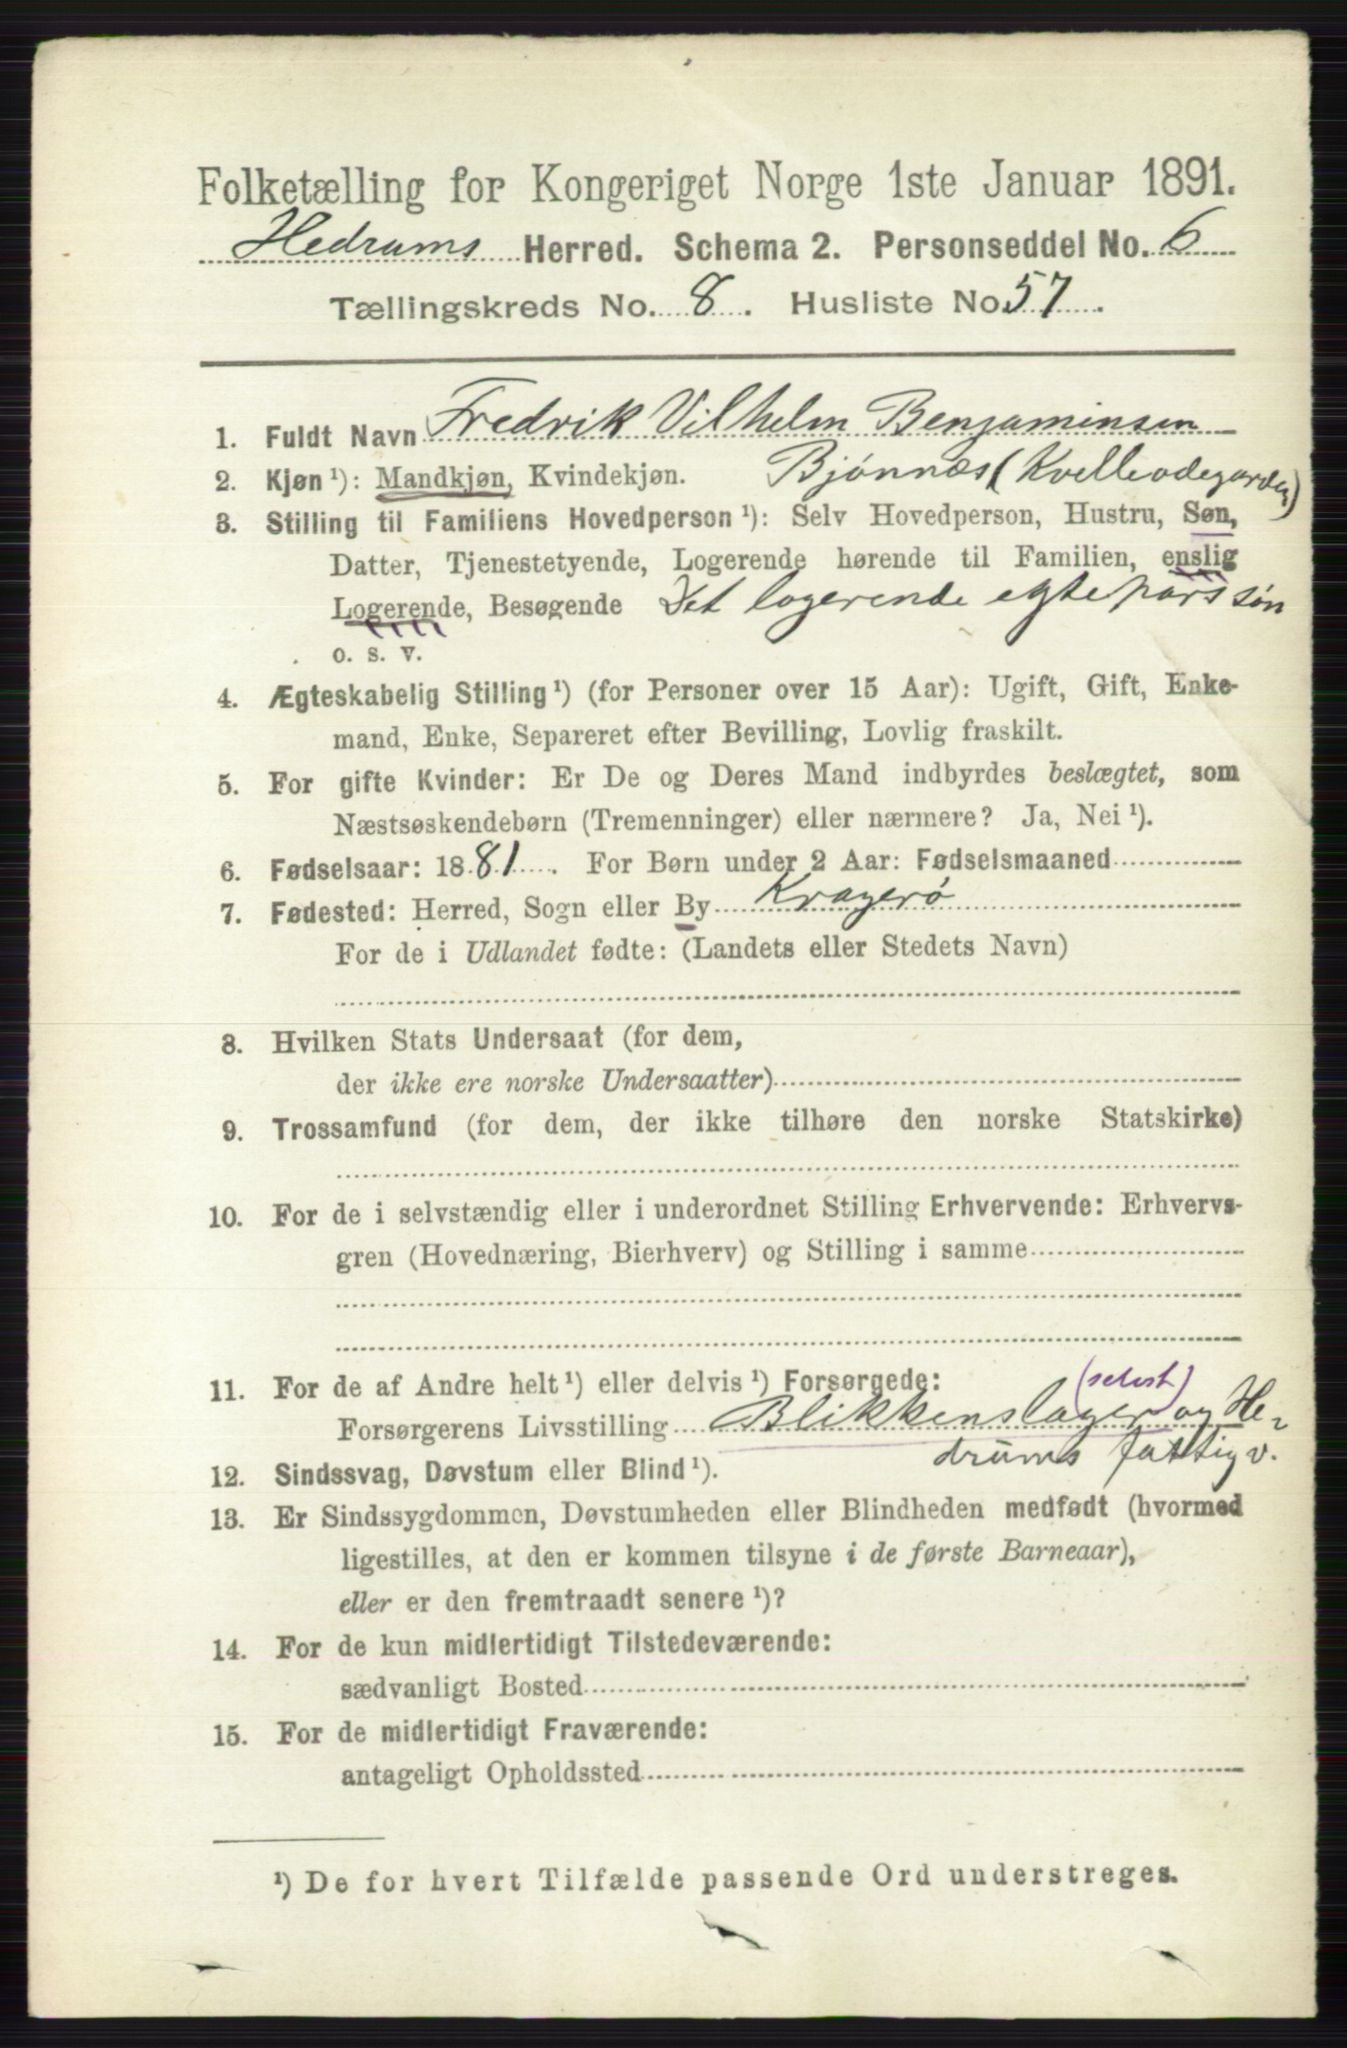 Folketælling for Kongeriget Norge 1ste Januar 1891.
Hedrums Herred. Schema 2. Personseddel No. 6
Tællingskreds No. 8. Husliste No. 57.
1. Fuldt Navn Fredrik Vilhelm Benjaminsen
2. Kjøn ¹): Mandkjøn, Kvindekjøn. Bjønnæs (Kvelleødegarden)
3. Stilling til Familiens Hovedperson ¹): Selv Hovedperson, Hustru, Søn,
Datter, Tjenestetyende, Logerende hørende til Familien, enslig
Logerende, Besøgende Det logerende egtepars søn
o. s. v.
4. Ægteskabelig Stilling ¹) (for Personer over 15 Aar): Ugift, Gift, Enke-
mand, Enke, Separeret efter Bevilling, Lovlig fraskilt.
5. For gifte Kvinder: Er De og Deres Mand indbyrdes beslægtet, som
Næstsøskendebørn (Tremenninger) eller nærmere? Ja, Nei ¹).
6. Fødselsaar: 1881. For Børn under 2 Aar: Fødselsmaaned
7. Fødested: Herred, Sogn eller By Kragerø
For de i Udlandet fødte: (Landets eller Stedets Navn)
8. Hvilken Stats Undersaat (for dem,
der ikke ere norske Undersaatter)
9. Trossamfund (for dem, der ikke tilhøre den norske Statskirke)
10. For de i selvstændig eller i underordnet Stilling Erhvervende: Erhvervs-
gren (Hovednæring, Bierhverv) og Stilling i samme
11. For de af Andre helt ¹) eller delvis ¹) Forsørgede:
Forsørgerens Livsstilling Blikkenslager og He-
drums fattigv.
12. Sindssvag, Døvstum eller Blind ¹).
13. Er Sindssygdommen, Døvstumheden eller Blindheden medfødt (hvormed
ligestilles, at den er kommen tilsyne i de første Barneaar),
eller er den fremtraadt senere ¹)?
14. For de kun midlertidigt Tilstedeværende:
sædvanligt Bosted
15. For de midlertidigt Fraværende:
antageligt Opholdssted
¹) De for hvert Tilfælde passende Ord understreges.